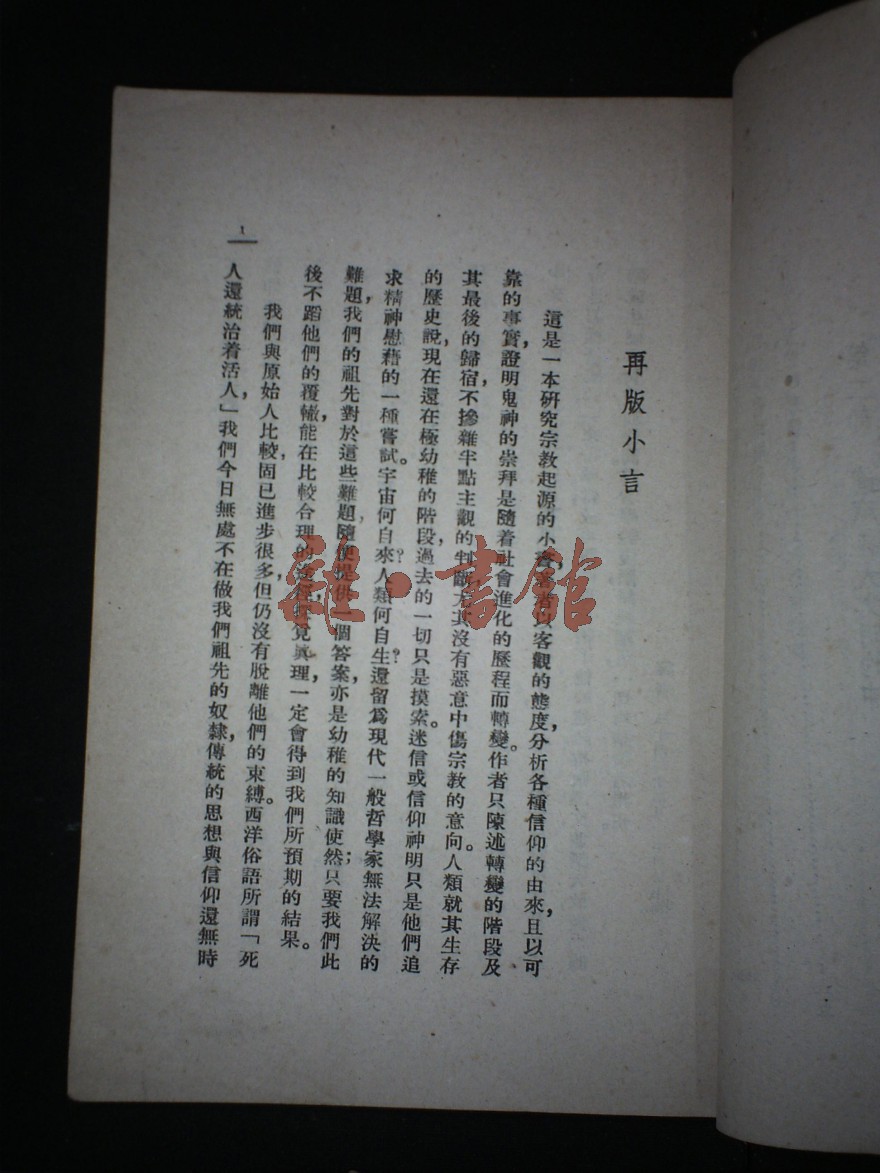 再版小言
這是一本研究宗教起源的小書,著者以客觀的態度,分析各種信仰的由來,且以可
靠的事實,證明鬼神的崇拜是隨着社會進化的歷程而轉變。作者只陳述轉變的階段及
其最後的歸宿,不摻雜半點主觀的判斷,尤其沒有惡意中傷宗教的意向。人類就其生存
的歷史說,現在還在極幼稚的階段,過去的一切只是摸索。迷信或信仰神明只是他們追
求精神慰藉的一種嘗試。宇宙何自來?人類何自生?還留爲現代一般哲學家無法解決的
難題,我們的祖先對於這些難題,隨便提供一個答案,亦是幼稚的知識使然;只要我們此
後不蹈他們的覆轍,能在比較合理的途程探覓眞理,一定會得到我們所預期的結果。
我們與原始人比較,固已進步很多,但仍沒有脫離他們的束縛。西洋俗語所謂「死
人還統治着活人,」我們今日無處不在做我們祖先的奴隸,傳統的思想與信仰還無時
1
雜·書館